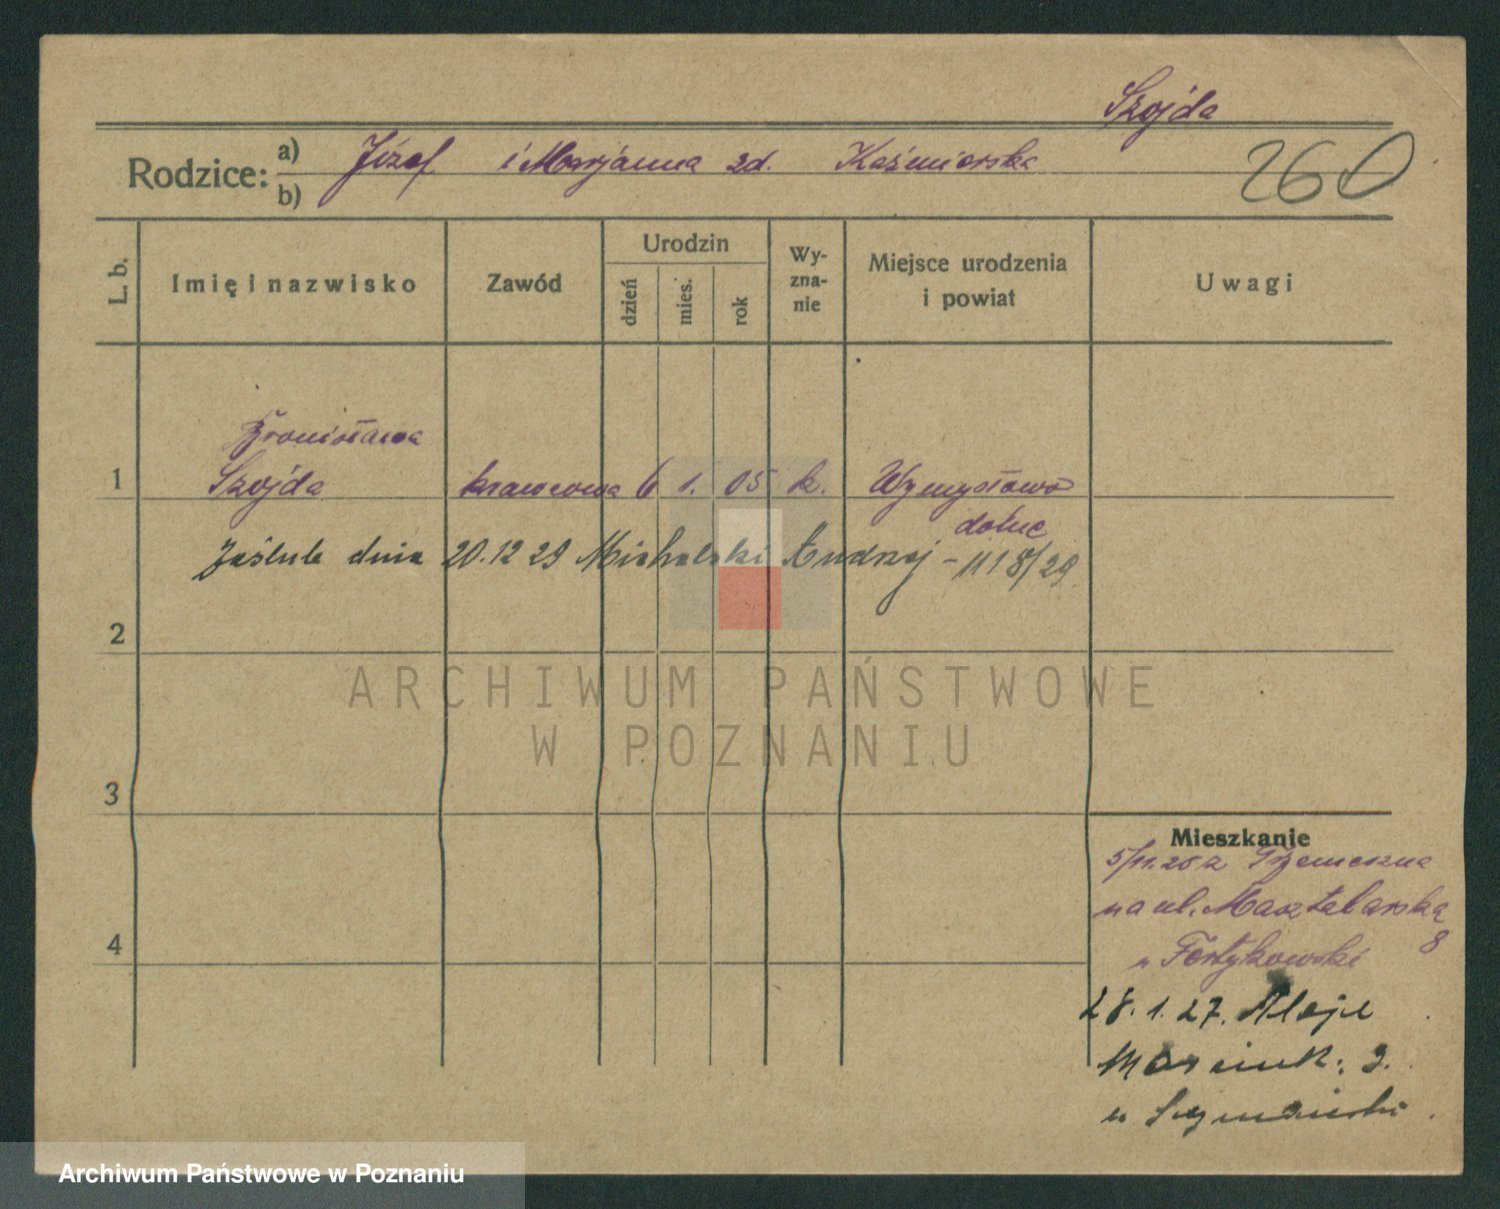 Szojda
Rodzice: a) Józef i Marjanna zd. Kaźmierska
b)
260
L. b.
Imię i nazwisko
Zawód
Urodzin
dzień
mies.
rok
Wy-
zna-
nie
Miejsce urodzenia
i powiat
Uwagi
Bronisława
1 Szojda krawcowa 6 1. 05 k. Wymysłowo
dolne
Zaślub. dnia 20.12 29 Michalski Andrzej - 1118/29
2
ARCHIWUM PAŃSTWOWE
W POZNANIU
3
Mieszkanie
5/11.25 z Trzemeszna
na ul. Masztalarską
8
u
4
28.1.27. Aleje
Marcink: 3.
u Szymański
Archiwum Państwowe w Poznaniu